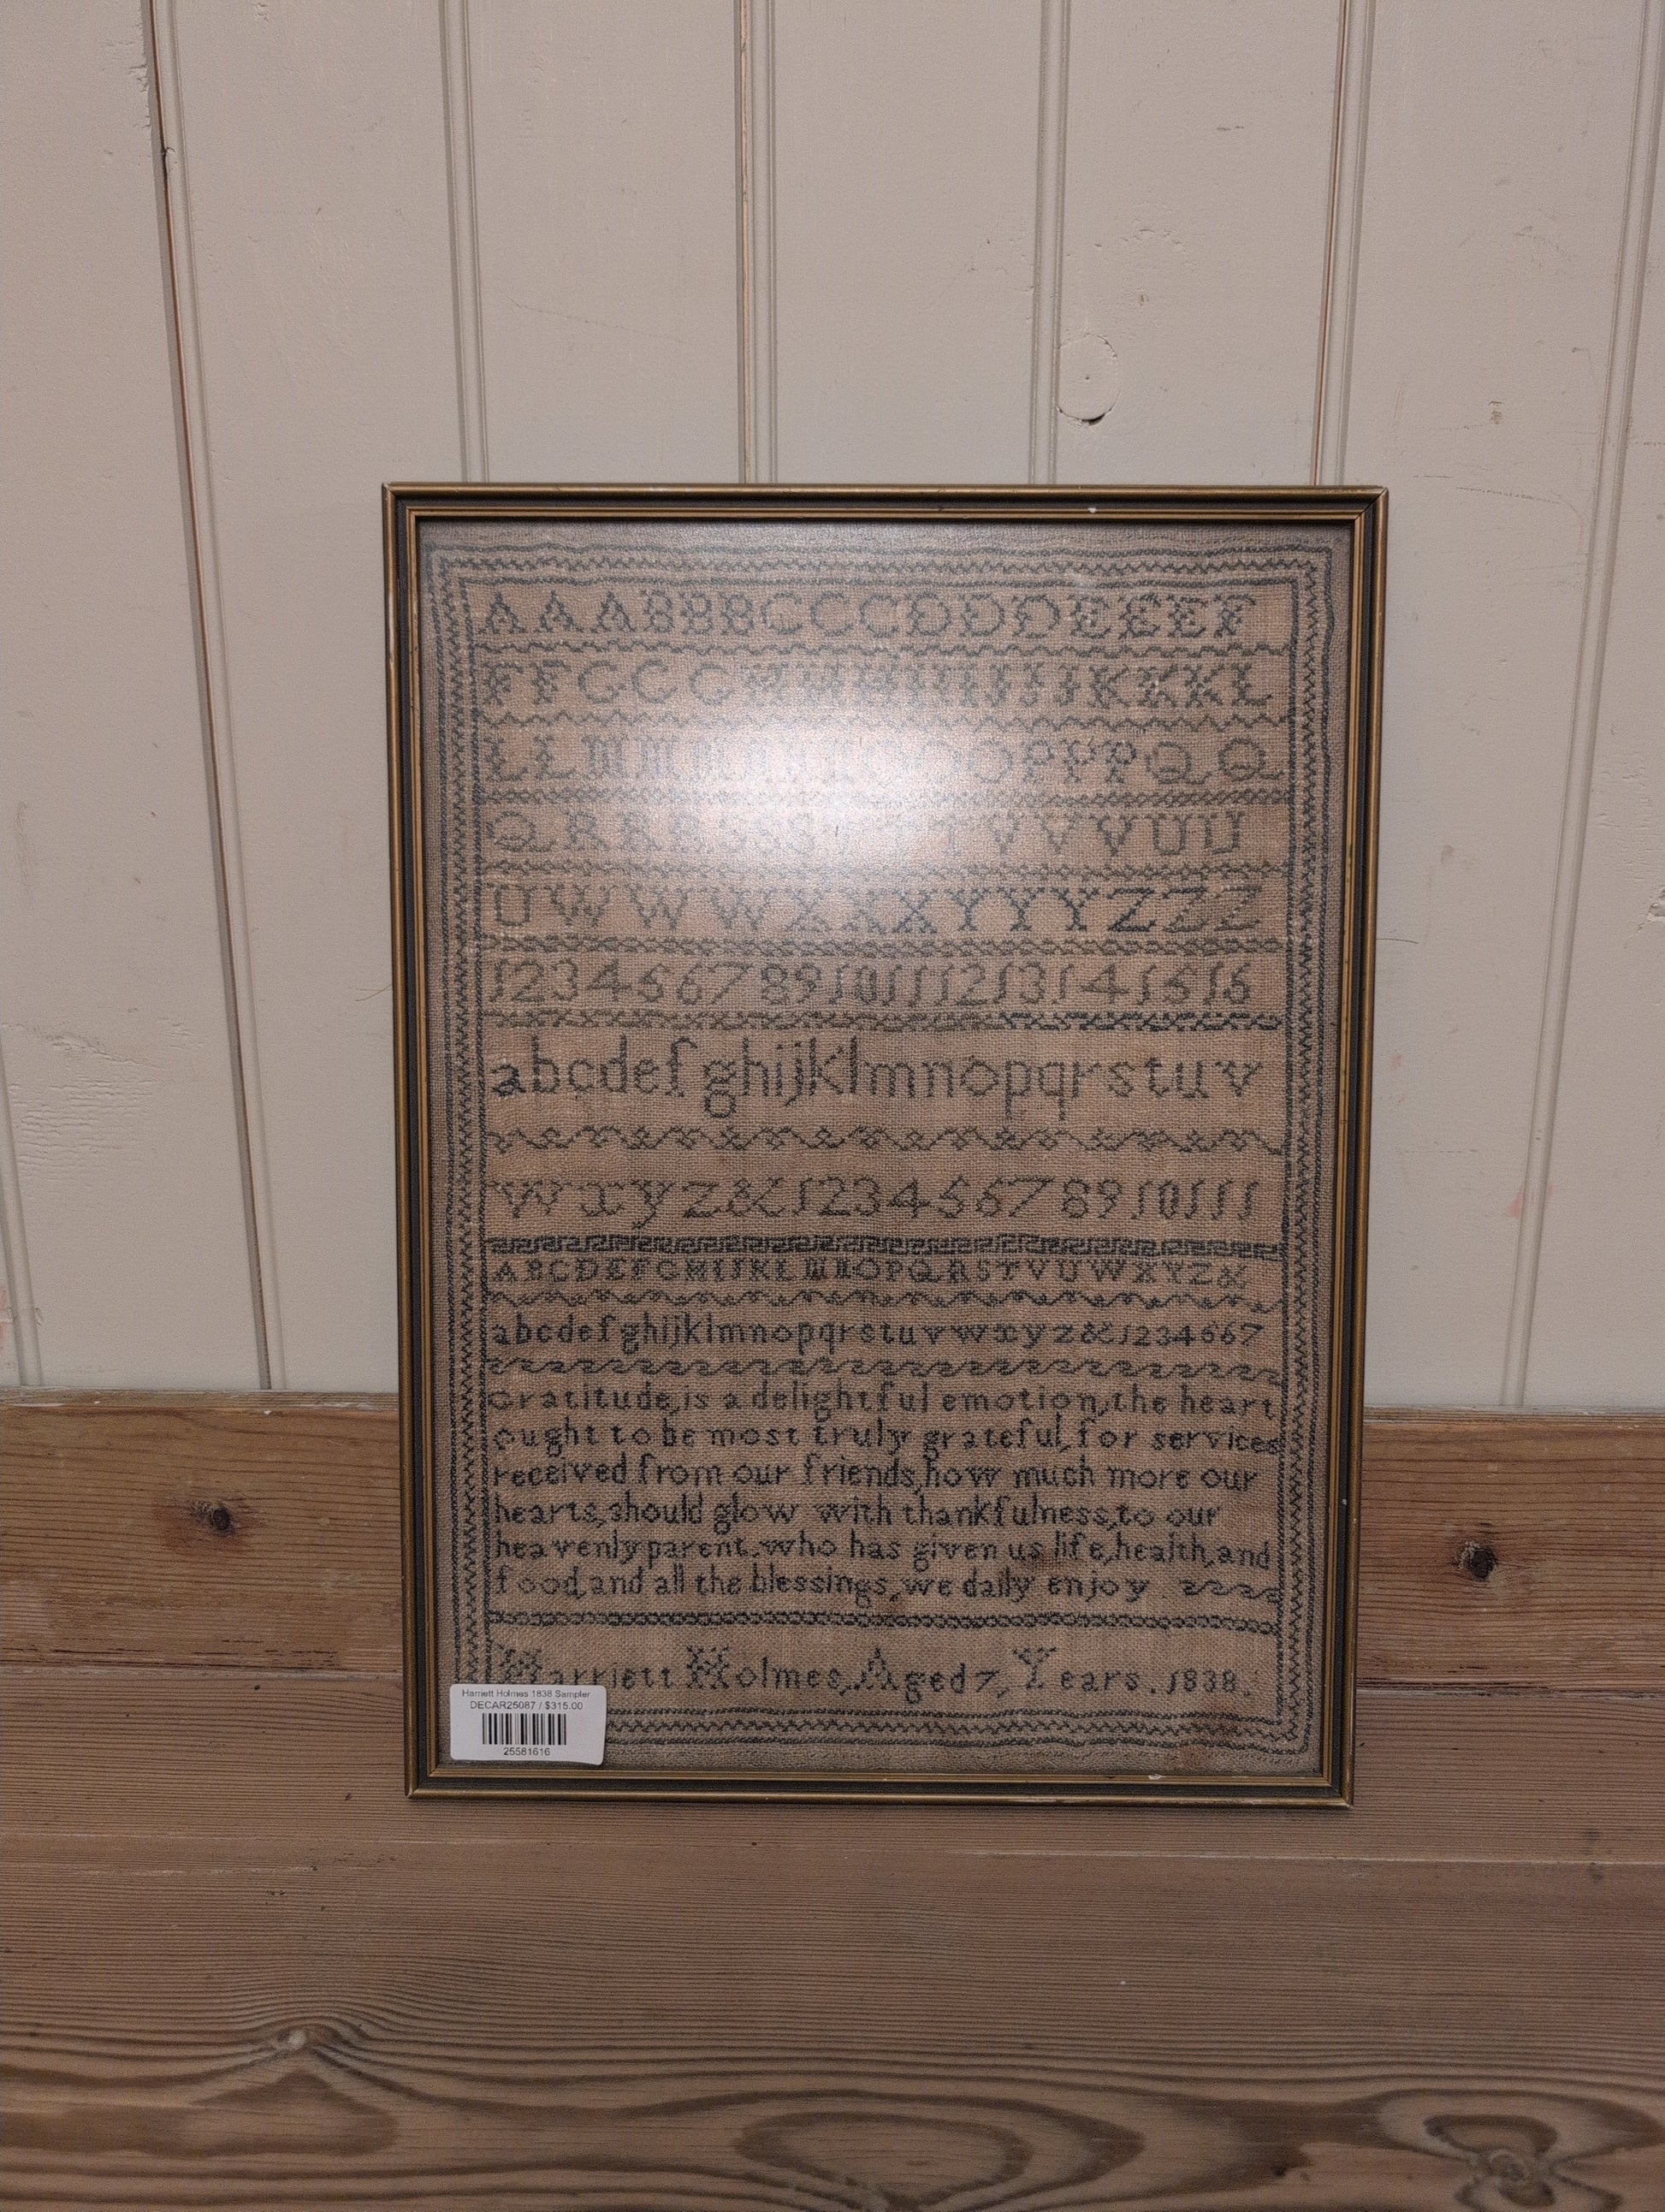 A A A B B B C C C D D D E E E F
F F G G G H H H I I I J J J K K K L
L L M M M N N O O P P P Q Q
Q R R R S S T V V V U U
U W W W X X X Y Y Y Z Z Z
1 2 3 4 5 6 7 8 9 10 11 12 13 14 15 16
a b c d e f g h i j k l m n o p q r s t u v
w x y z & 1 2 3 4 5 6 7 8 9 10 11
A B C D E F G H I J K L M N O P Q R S T V U W X Y Z &
a b c d e f g h i j k l m n o p q r s t u v w x y z & 1 2 3 4 5 6 7
Gratitude, is a delightful emotion, the heart
ought to be most truly grateful, for services
received from our friends, how much more our
hearts, should glow with thankfulness, to our
heavenly parent. who has given us life, health, and
food, and all the blessings, we daily enjoy
Harriett Holmes, Aged 7, Years. 1838.
Harriett Holmes 1838 Sampler
DECAR25087 / $315.00
25581616